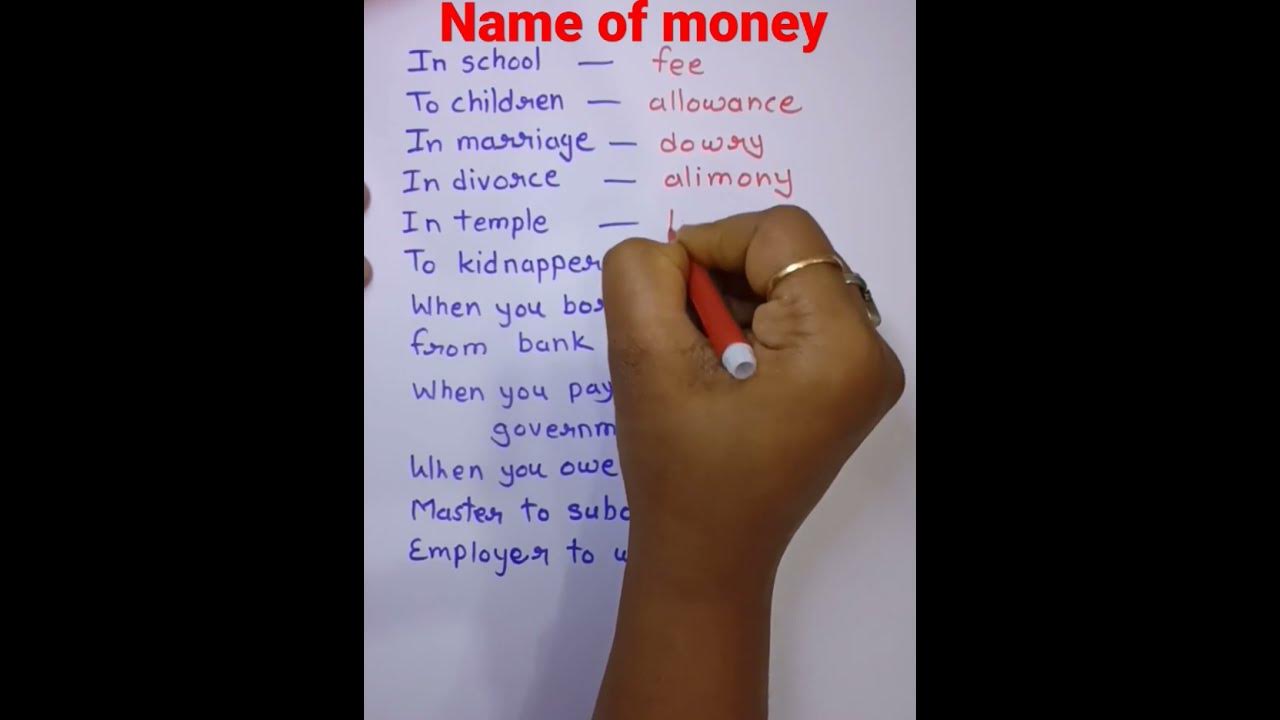 Name of money
In school — fee
To children — allowance
In marriage — dowry
In divorce — alimony
In temple —
To kidnapper
When you
from bank
When you pay
When you owe
Master to
Employer to